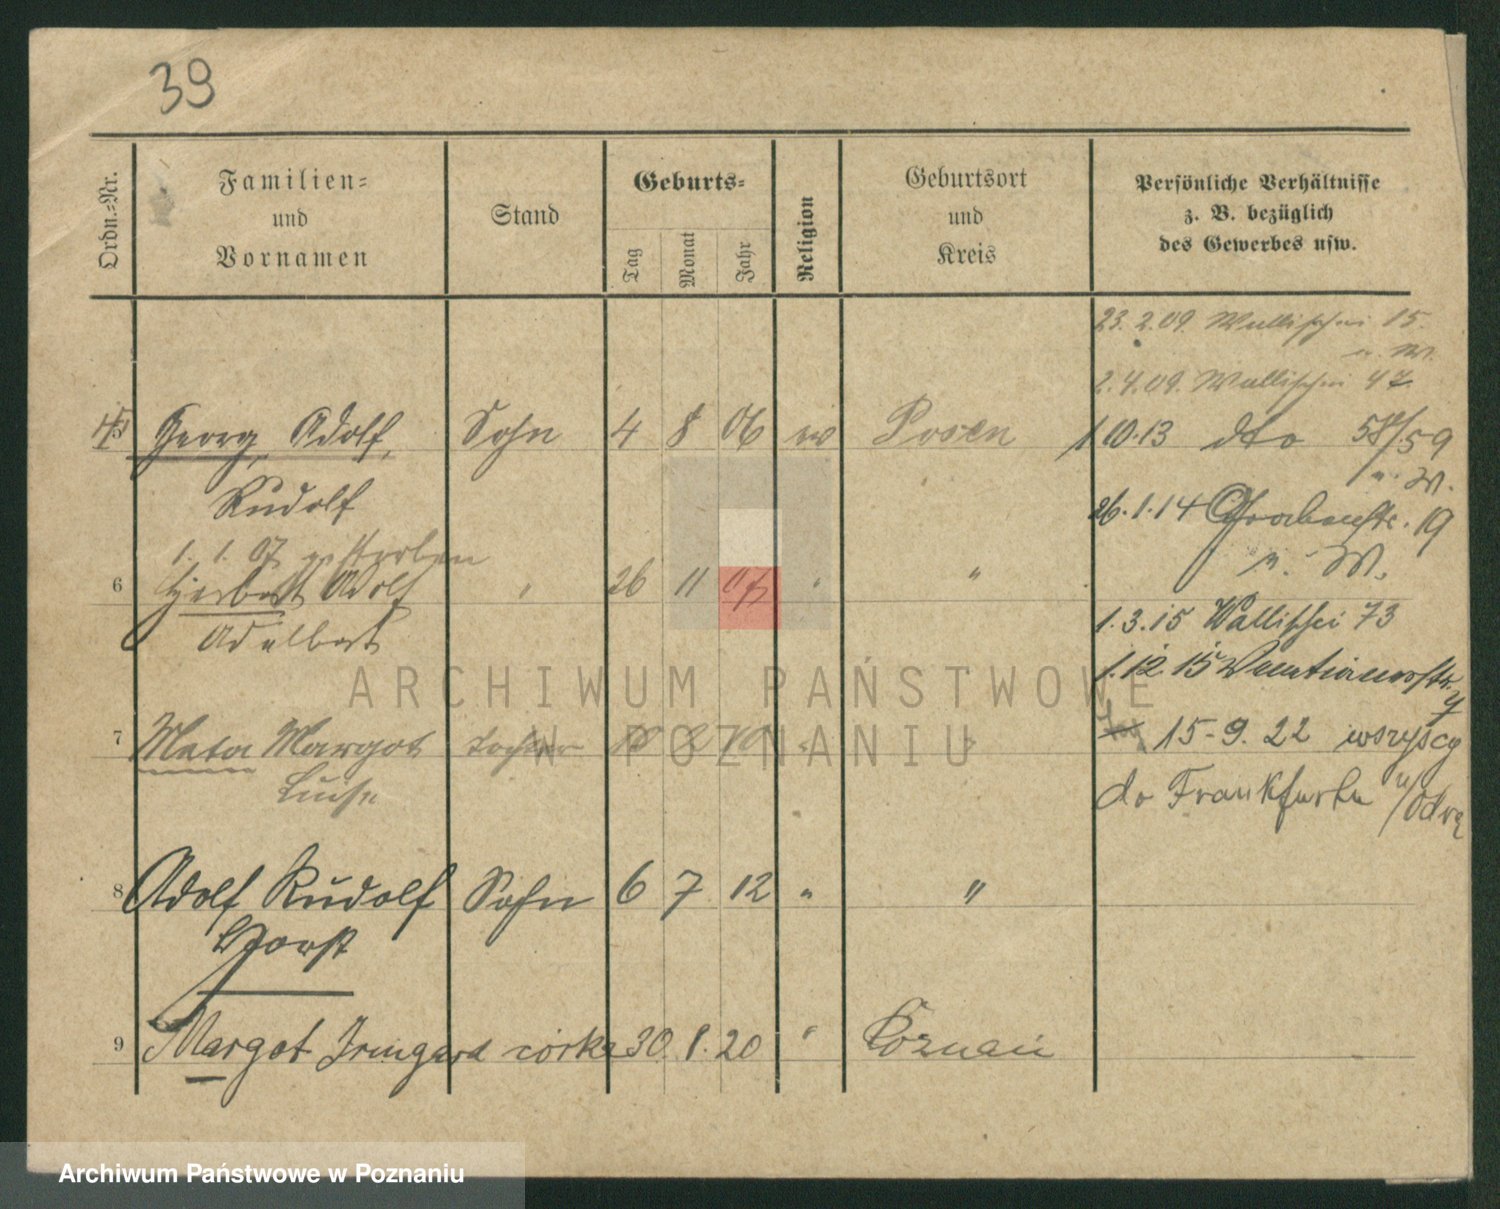 39
Ordn.-Nr.
Familien-
und
Vornamen
Stand
Geburts-
Tag
Monat
Jahr
Religion
Geburtsort
und
Kreis
Persönliche Verhältnisse
z. B. bezüglich
des Gewerbes usw.
23. 2. 09. Wallischei 15.
n. W.
2. 4. 09. Wallischei 47
5 Georg, Adolf, Sohn 4 8 06 Posen 1 10. 13 dto 58/59
Rudolf
n. W.
26. 1. 14 Grabenstr. 19
n. W.
1. 1. 07 gestorben
6 Herbert Adolf " 26 11 07 " "
Adalbert
1. 3. 15 Wallischei 73
1. 12. 15
7 Margot Tochter
Luise
15-9. 22 wszyscy
do Frankfurtu n/Odrą
8 Adolf Rudolf Sohn 6 7 12 " "
Horst
9 Margot Irmgard córka 30. 8. 20 " Poznań
ARCHIWUM PAŃSTWOWE
W POZNANIU
Archiwum Państwowe w Poznaniu